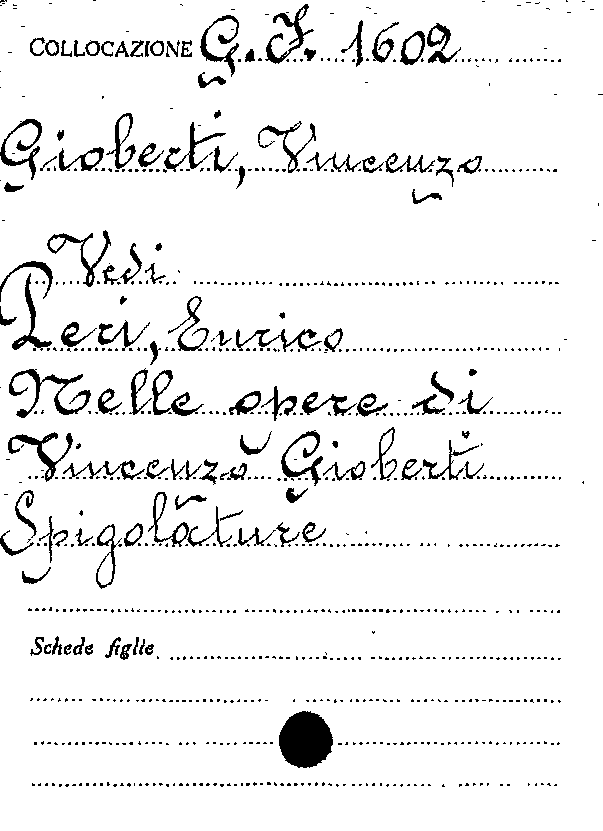 COLLOCAZIONE G. F. 1602
Gioberti, Vincenzo
Vedi
Peri, Enrico
Nelle opere di
Vincenzo Gioberti
Spigolature
Schede figlie